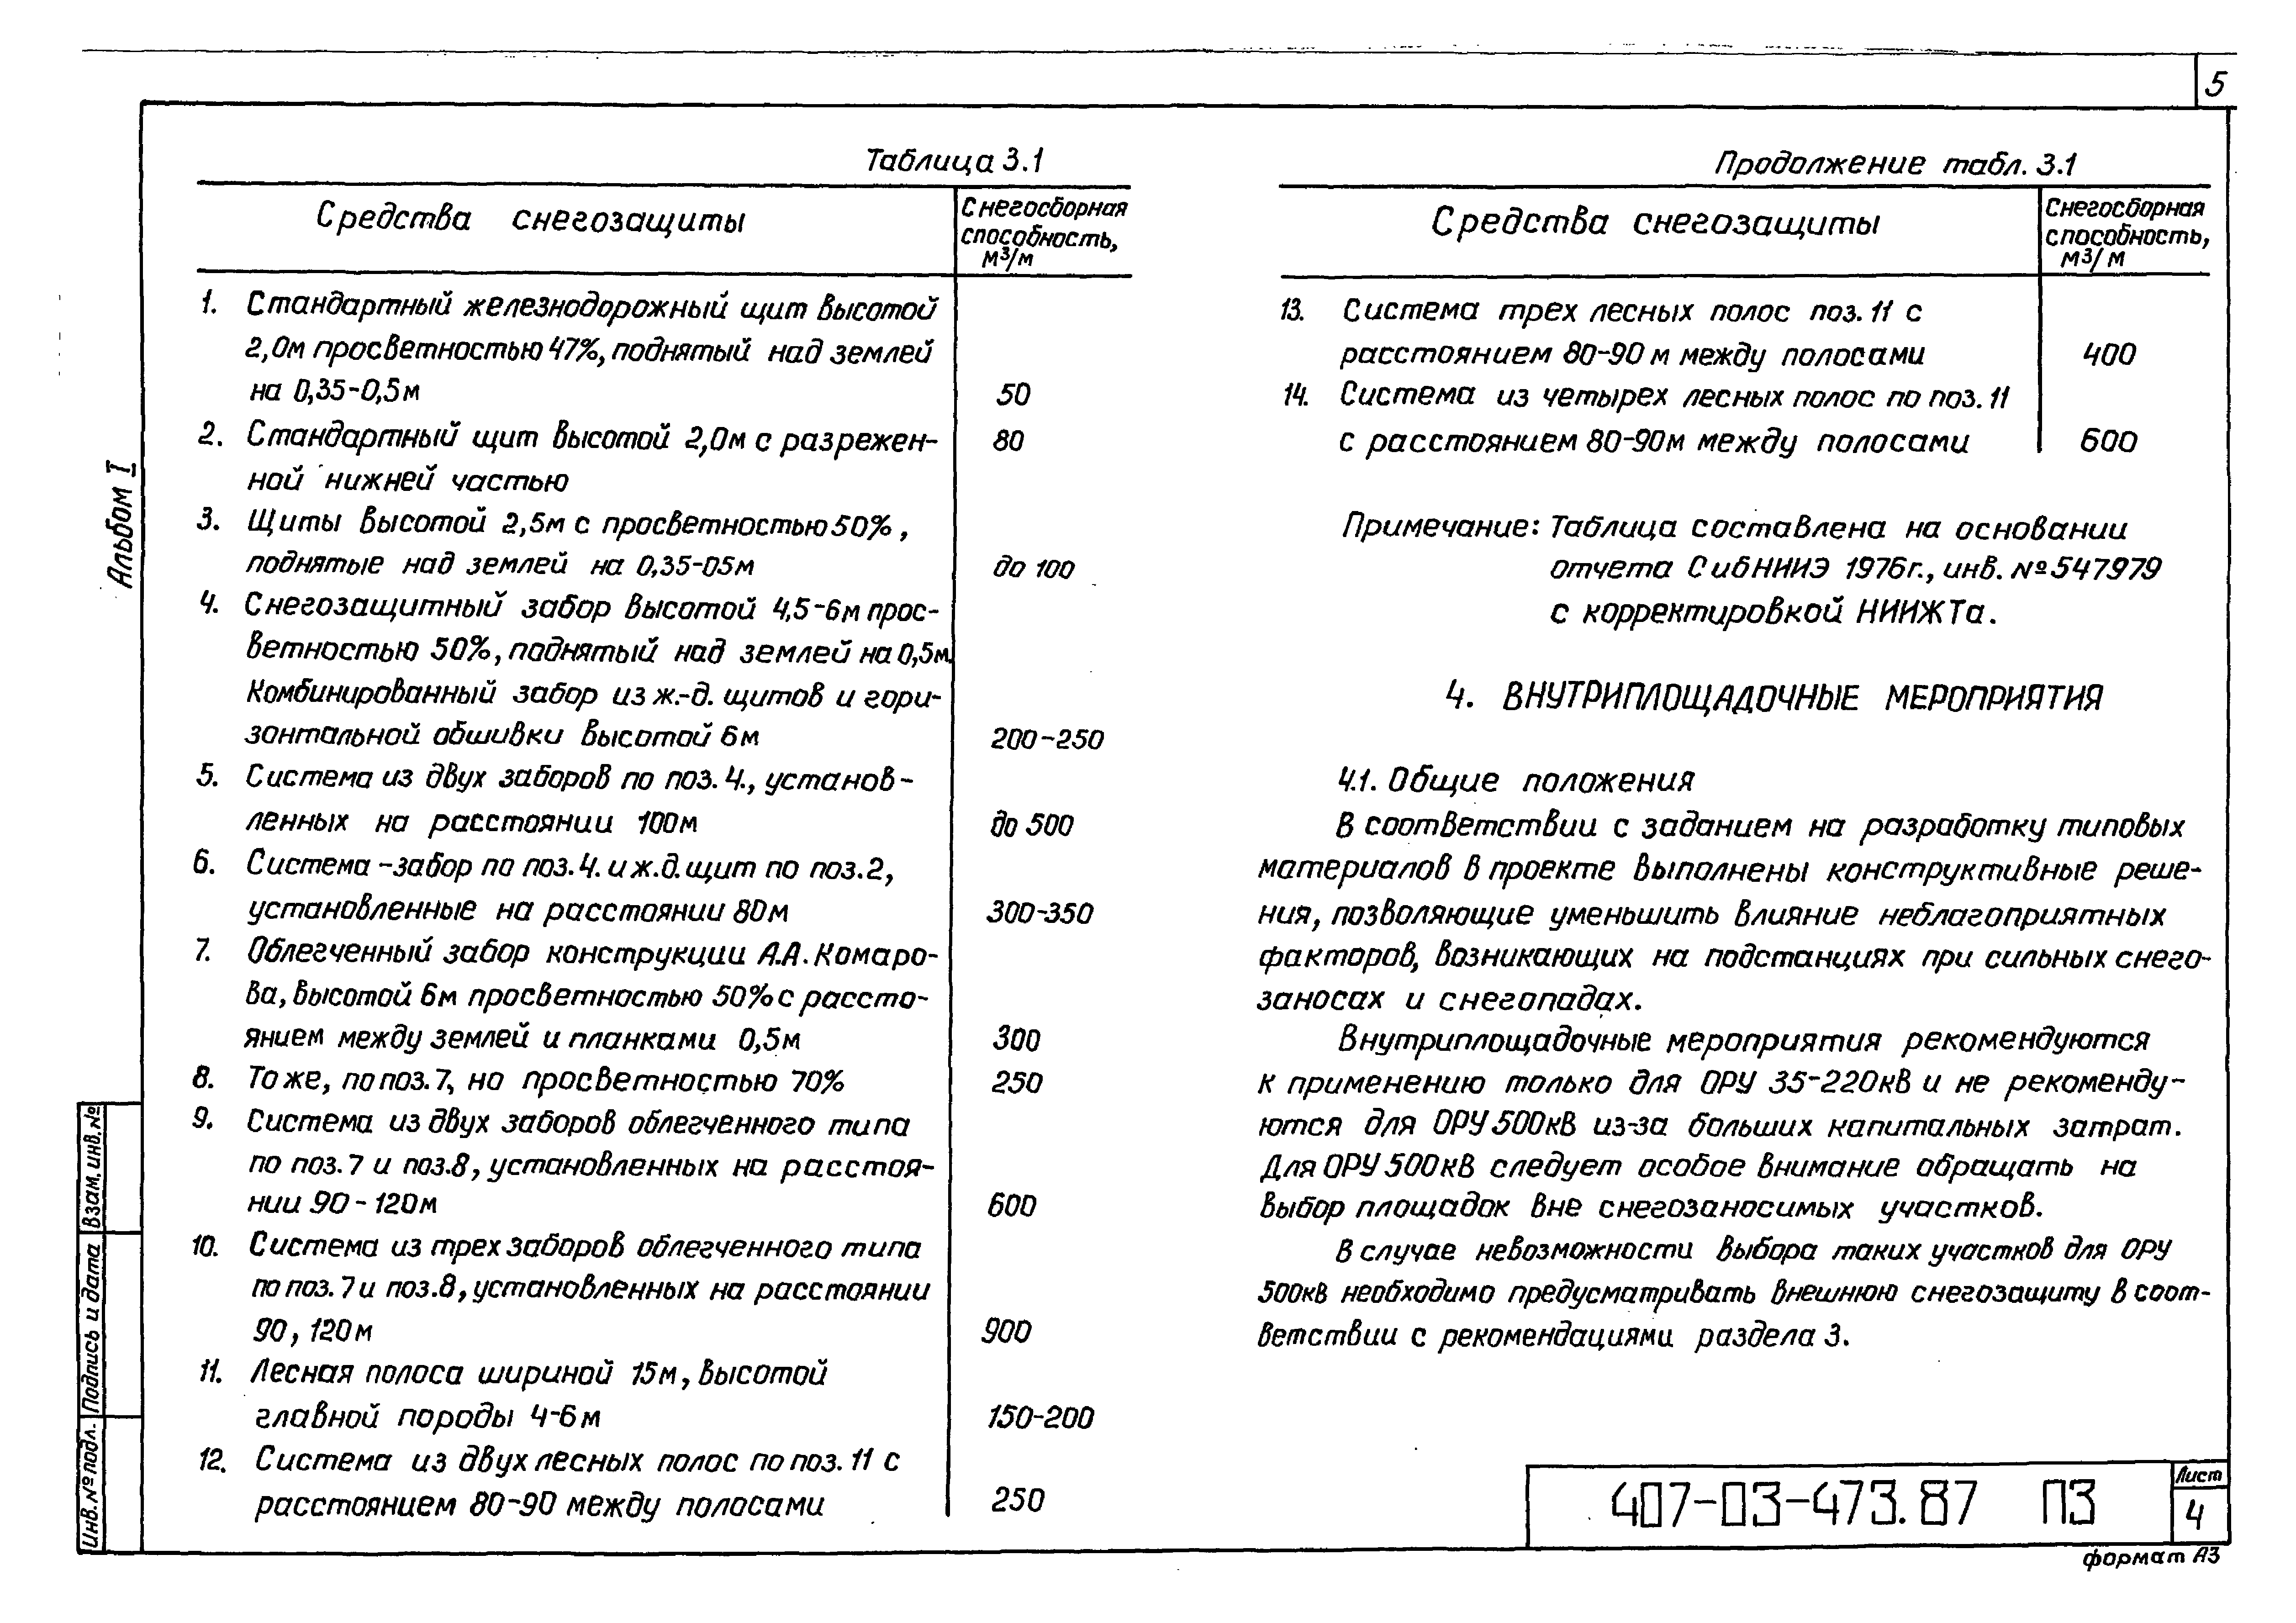 5
Таблица 3.1
Средства снегозащиты
Снегосборная
способность,
м³/м
1. Стандартный железнодорожный щит высотой
2,0м просветностью 47%, поднятый над землей
на 0,35-0,5м 50
2. Стандартный щит высотой 2,0м с разрежен- 80
ной нижней частью
3. Щиты высотой 2,5м с просветностью 50%,
поднятые над землей на 0,35-05м до 100
4. Снегозащитный забор высотой 4,5-6м прос-
ветностью 50%, поднятый над землей на 0,5м.
Комбинированный забор из ж.-д. щитов и гори-
зонтальной обшивки высотой 6м 200-250
5. Система из двух заборов по поз. 4., установ-
ленных на расстоянии 100м до 500
6. Система -забор по поз.4. и ж.д. щит по поз.2,
установленные на расстоянии 80м 300-350
7. Облегченный забор конструкции А.А. Комаро-
ва, высотой 6м просветностью 50% с рассто-
янием между землей и планками 0,5м 300
8. То же, по поз.7, но просветностью 70% 250
9. Система из двух заборов облегченного типа
по поз.7 и поз.8, установленных на расстоя-
нии 90-120м 600
10. Система из трех заборов облегченного типа
по поз.7 и поз.8, установленных на расстоянии
90, 120м 900
11. Лесная полоса шириной 15м, высотой
главной породы 4-6м 150-200
12. Система из двух лесных полос по поз. 11 с
расстоянием 80-90 между полосами 250
Продолжение табл. 3.1
Средства снегозащиты
Снегосборная
способность,
м³/м
13. Система трех лесных полос поз. 11 с
расстоянием 80-90 м между полосами 400
14. Система из четырех лесных полос по поз. 11
с расстоянием 80-90м между полосами 600
Примечание: Таблица составлена на основании
отчета СибНИИЭ 1976г., инв. №547979
с корректировкой НИИЖТа.
4. ВНУТРИПЛОЩАДОЧНЫЕ МЕРОПРИЯТИЯ
4.1. Общие положения
В соответствии с заданием на разработку типовых
материалов в проекте выполнены конструктивные реше-
ния, позволяющие уменьшить влияние неблагоприятных
факторов, возникающих на подстанциях при сильных снего-
заносах и снегопадах.
Внутриплощадочные мероприятия рекомендуются
к применению только для ОРУ 35-220кВ и не рекоменду-
ются для ОРУ 500кВ из-за больших капитальных затрат.
Для ОРУ 500кВ следует особое внимание обращать на
выбор площадок вне снегозаносимых участков.
В случае невозможности выбора таких участков для ОРУ
500кВ необходимо предусматривать внешнюю снегозащиту в соот-
ветствии с рекомендациями раздела 3.
Альбом I
Взам. инв. №
Подпись и дата
Инв. № подл.
407-03-473.87 ПЗ
Лист
4
формат А3